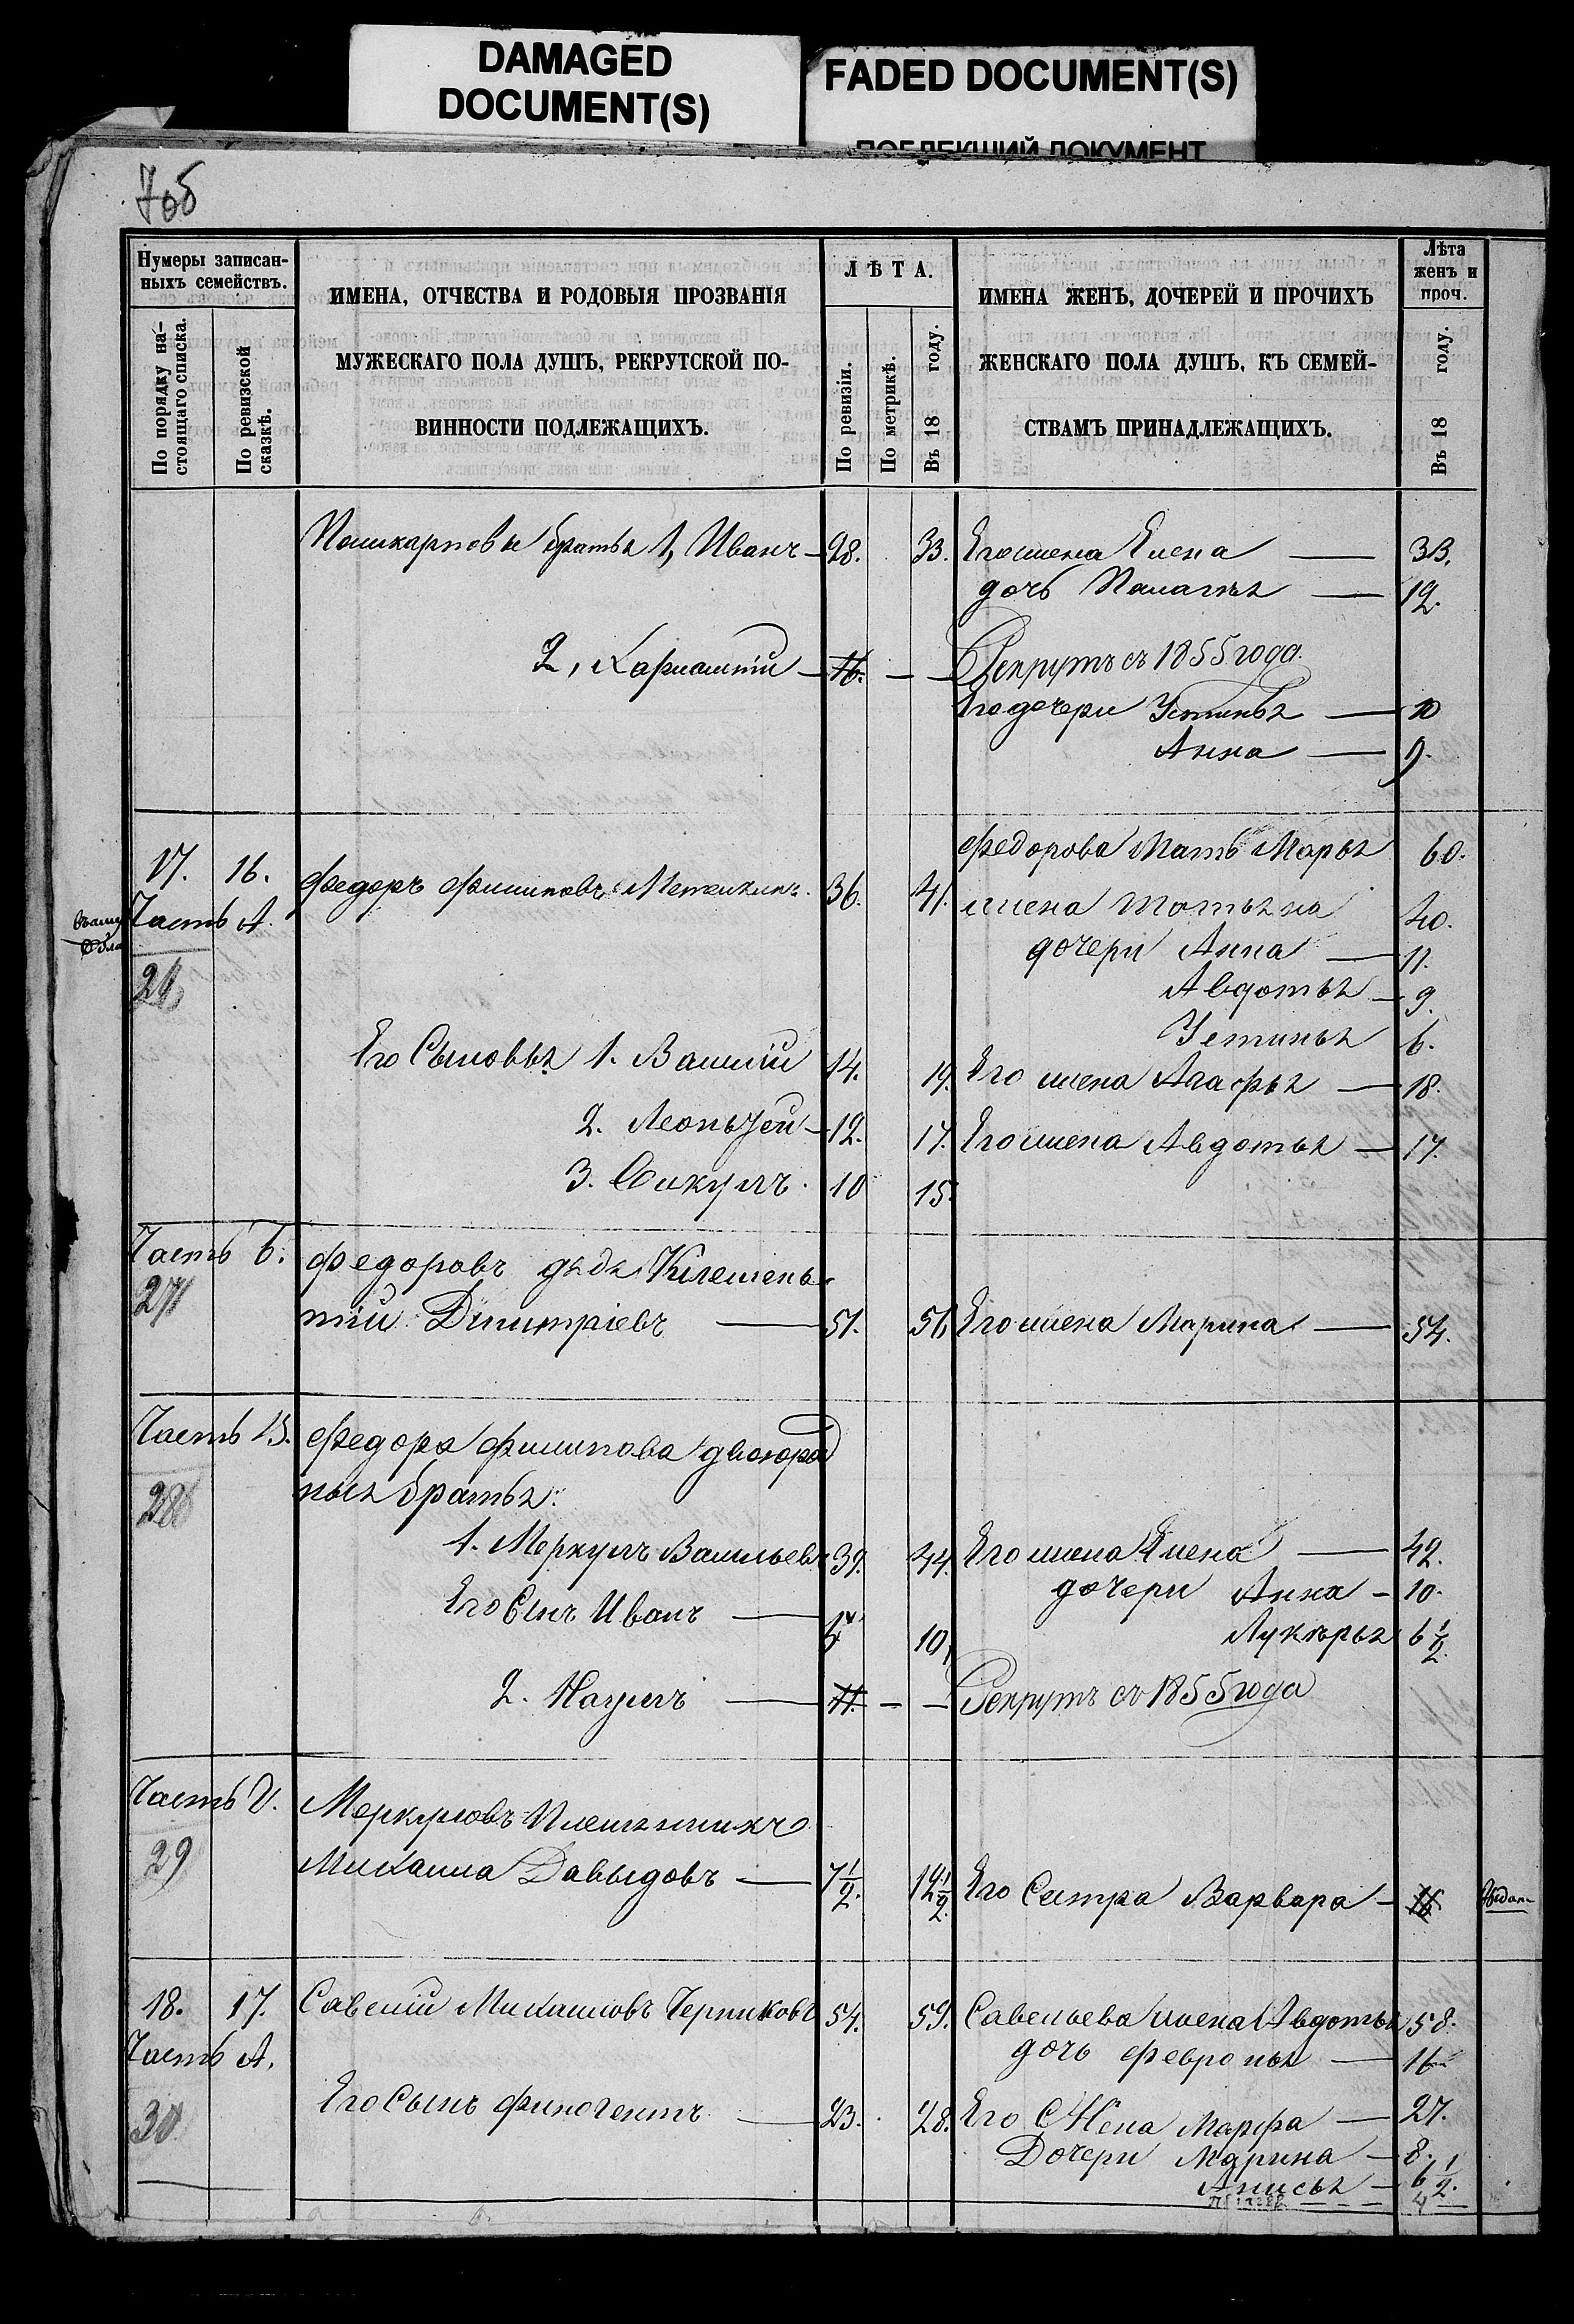 DAMAGED
DOCUMENT(S)
FADED DOCUMENT(S)
ПОБЛЕКШИЙ ДОКУМЕНТ
7об
Нумеры записан-
ныхъ семействъ.
По порядку на-
стоящаго списка.
По ревизской
сказкѣ.
ИМЕНА, ОТЧЕСТВА И РОДОВЫЯ ПРОЗВАНІЯ
МУЖЕСКАГО ПОЛА ДУШЪ, РЕКРУТСКОЙ ПО-
ВИННОСТИ ПОДЛЕЖАЩИХЪ.
ЛѢТА.
По ревизіи.
По метрикѣ.
Въ 18 году.
ИМЕНА ЖЕНЪ, ДОЧЕРЕЙ И ПРОЧИХЪ
ЖЕНСКАГО ПОЛА ДУШЪ, КЪ СЕМЕЙ-
СТВАМЪ ПРИНАДЛЕЖАЩИХЪ.
Лѣта
женъ и
проч.
Въ 18 году.
Поликарповы братья 1, Иванъ 28. 33. Его жена Елена 33.
дочь Палагѣя 12.
2, 16. Рекрутъ съ 1855 года.
Его дочери Устинья 10
Анна 9.
Федорова Мать Марья 60.
17. 16. Федоръ Филиповъ 36. 41. жена Татьяна 40.
Часть А.
дочери Анна 11.
26 Авдотья 9.
Устинья 6.
Его Сыновья 1. Василій 14. 19. Его жена Агафья 18.
2. 12. 17. Его жена Авдотья 17.
3. 10 15.
Часть Б. Федоровъ дядя Клемень-
27 тій Дмитріевъ 51. 56 Его жена Марина 54.
Часть В. Федора Филипова двоюрод
28 ныя братья:
1. Меркулъ Васильевъ 39. 44. Его жена Елена 42.
дочери Анна 10.
Его Сынъ Иванъ 10 Лукерья 6½
2. Наумъ Рекрутъ съ 1855 года
Часть Г. Меркуловъ Племянникъ
29 Михаила Давыдовъ 7½. 12½ Его Сестра Варвара 16
18. 17. Савелій Михаиловъ Черниковъ 54. 59. Савельева жена Авдотья 58.
Часть А. дочь Февронья 16
30 Его Сынъ Финогентъ 23. 28. Его Жена Марфа 27.
Дочери Марина 8.
Анисья 6½.
4